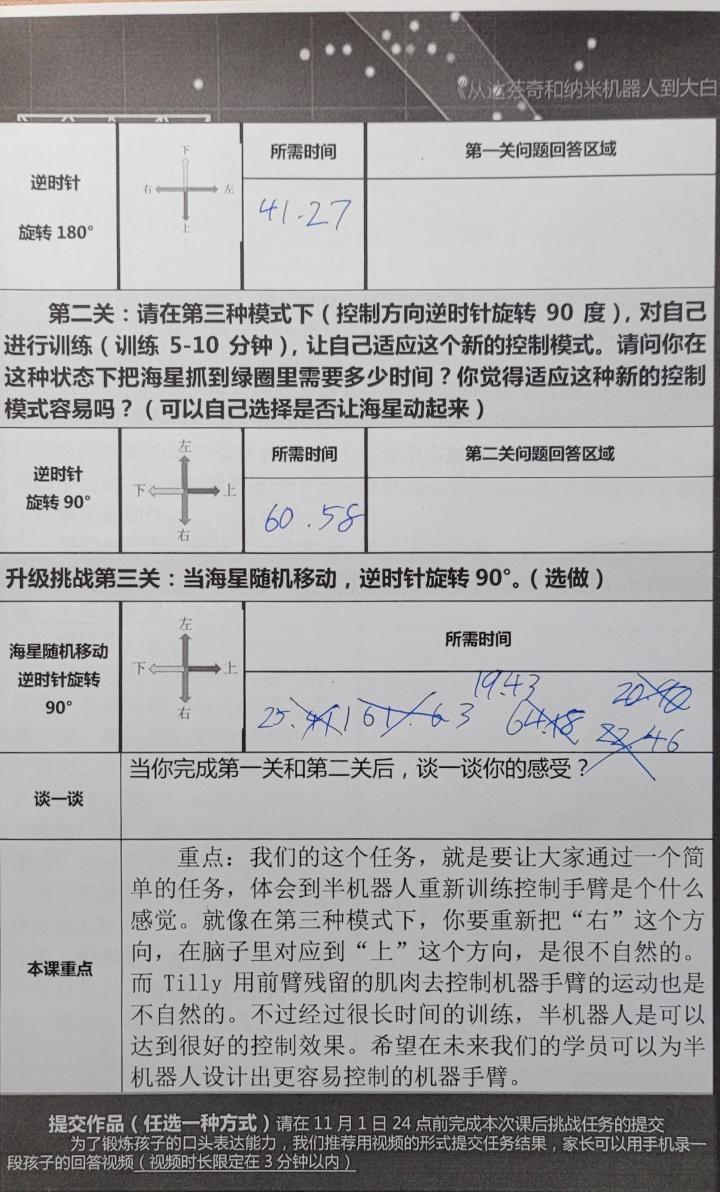 《从达芬奇和纳米机器人到大白
逆时针
旋转 180°
下
右 左
上
所需时间
第一关问题回答区域
41.27
第二关：请在第三种模式下（控制方向逆时针旋转 90 度），对自己
进行训练（训练 5-10 分钟），让自己适应这个新的控制模式。请问你在
这种状态下把海星抓到绿圈里需要多少时间？你觉得适应这种新的控制
模式容易吗？（可以自己选择是否让海星动起来）
逆时针
旋转 90°
左
下 上
右
所需时间
第二关问题回答区域
60.58
升级挑战第三关：当海星随机移动，逆时针旋转 90°。（选做）
海星随机移动
逆时针旋转
90°
左
下 上
右
所需时间
19.43
谈一谈
当你完成第一关和第二关后，谈一谈你的感受？
本课重点
重点：我们的这个任务，就是要让大家通过一个简
单的任务，体会到半机器人重新训练控制手臂是个什么
感觉。就像在第三种模式下，你要重新把“右”这个方
向，在脑子里对应到“上”这个方向，是很不自然的。
而 Tilly 用前臂残留的肌肉去控制机器手臂的运动也是
不自然的。不过经过很长时间的训练，半机器人是可以
达到很好的控制效果。希望在未来我们的学员可以为半
机器人设计出更容易控制的机器手臂。
提交作品（任选一种方式）请在 11 月 1 日 24 点前完成本次课后挑战任务的提交
为了锻炼孩子的口头表达能力，我们推荐用视频的形式提交任务结果，家长可以用手机录一
段孩子的回答视频（视频时长限定在 3 分钟以内）